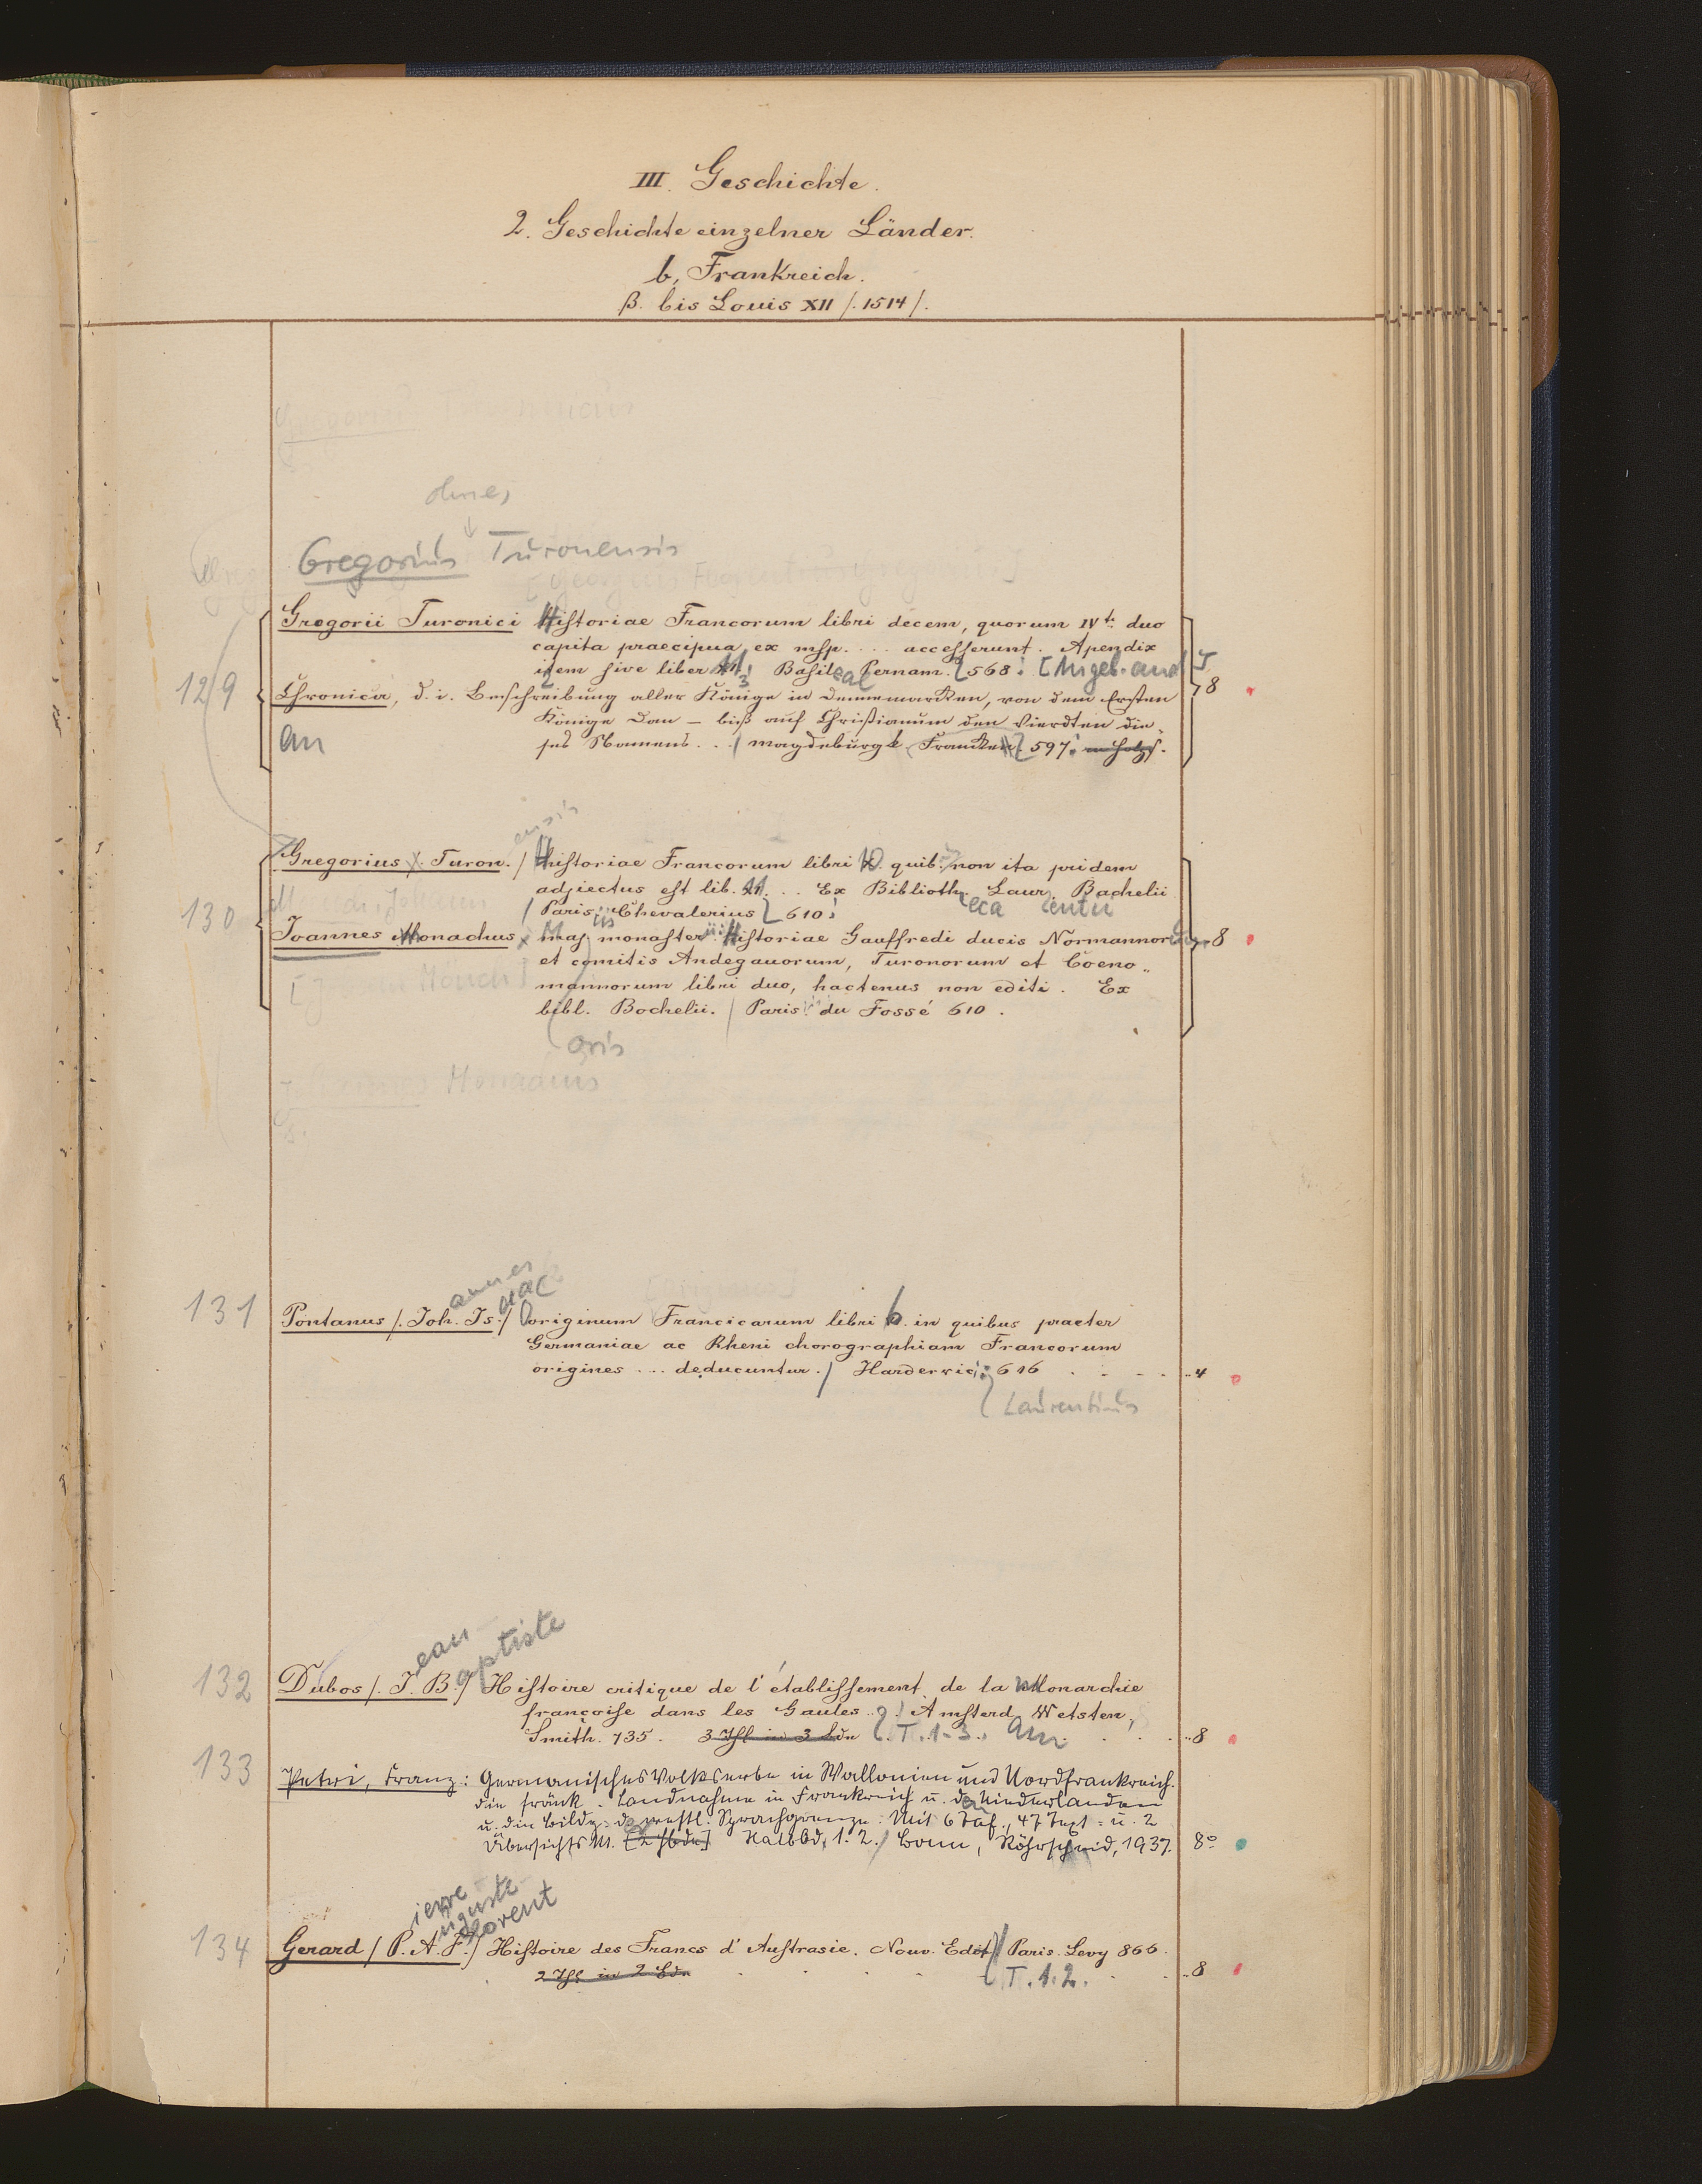 III. Geschichte.
2. Geschichte einzelner Länder.
b, Frankreich.
β. bis Louis XII /. 1514 /.
Gregorius Turonensis
129
Gregorii Turonici Historiae Francorum libri decem, quorum IV ti duo
capita praecipua, ex msp. ... accesserunt. Apendix
item sive liber 11; Basileae Pernam. 568. [Angeb. and
Chronica, d. i. Beschreibung aller Könige in Dennemarken, von dem Ersten
Könige Dan – biß auf Christianum den Vierdten die-
ses Namens ... / Magdeburgk Francken 597.
8
ensis
130
Gregorius Turon. / Historiae Francorum libri 10. quib. non ita pridem
adjectus est lib. 11. ... Ex Bibliotheca Laur. Bachelii
eca entii
/ Paris. Chevalerius 610.
Joannes Monachus maj monasterii Historiae Gauffredi ducis Normannor
8
et comitis Andegauorum, Turonorum et Coeno-
mannorum libri duo, hactenus non editi. Ex
bibl. Bochelii. / Paris. du Fossé 610.
oris
Monachus
annes
aac
131
Pontanus /. Joh. Is. / Originum Francicarum libri 6. in quibus praeter
Germaniae ac Rheni chorographiam Francorum
origines ... deducuntur. / Hardervici 616 . . . . 4
Laurentius
ean
aptiste
132
Dubos /. J. B. / Histoire critique de l'établissement de la Monarchie
françoise dans les Gaules .. / Amsterd. Wetsten,
Smith. 735. 3 Thl in 3 Bdn T. 1-3. . . 8
133
Petri, Franz: Germanisches Volkserbe in Wallonien und Nordfrankreich.
die fränk. Landnahme in Frankreich u. den Niederlanden
u. die Bildg. d. westl. Sprachgrenze. Mit 6 Taf., 47 Text- u. 2
Übersichts Kt. [2 Hbde] Halbbd. 1. 2. / Bonn, Röhrscheid, 1937. 8°
ierre
uguste
lorent
134
Gerard / P. A. F. / Histoire des Francs d'Austrasie. Nouv. Edit / Paris. Levy 866.
2 Thl in 2 Bdn T. 1. 2. . . 8